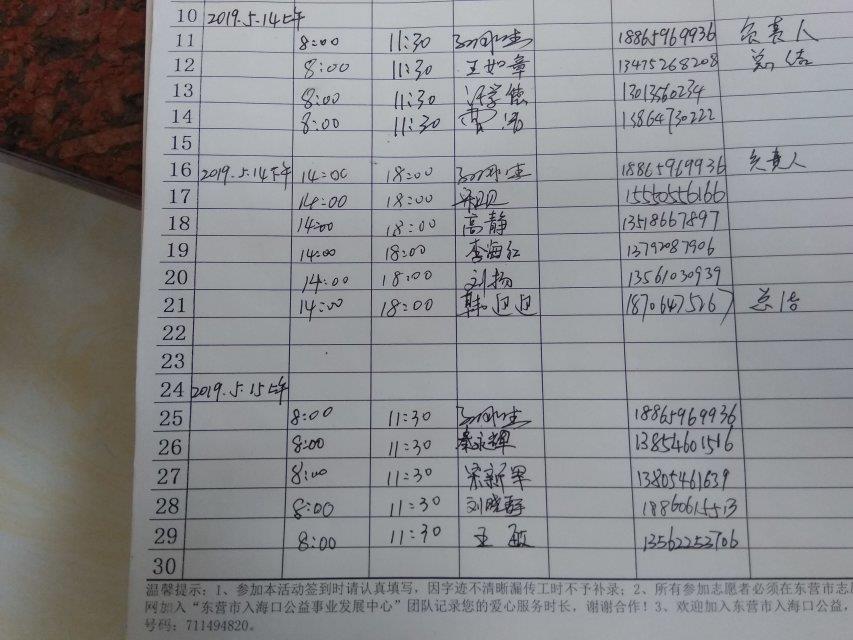 10 2019.5.14上午
11 8:00 11:30 18865969936 负责人
12 8:00 11:30 王如章 13475268208 总结
13 8:00 11:30 13013560234
14 8:00 11:30 13864730222
15
16 2019.5.14下午 14:00 18:00 18865969936 负责人
17 14:00 18:00 15550556166
18 14:00 18:00 高静 13518667897
19 14:00 18:00 李海红 13792087906
20 14:00 18:00 刘扬 13561030939
21 14:00 18:00 韩迎迎 18706475267 总结
22
23
24 2019.5.15上午
25 8:00 11:30 18865969936
26 8:00 11:30 13854601516
27 8:00 11:30 宋新军 13805461639
28 8:00 11:30 刘晓静 18860615513
29 8:00 11:30 王敏 13562253706
30
温馨提示：1、参加本活动签到时请认真填写，因字迹不清晰漏传工时不予补录；2、所有参加志愿者必须在东营市志愿
网加入“东营市入海口公益事业发展中心”团队记录您的爱心服务时长，谢谢合作！3、欢迎加入东营市入海口公益，
号码：711494820。